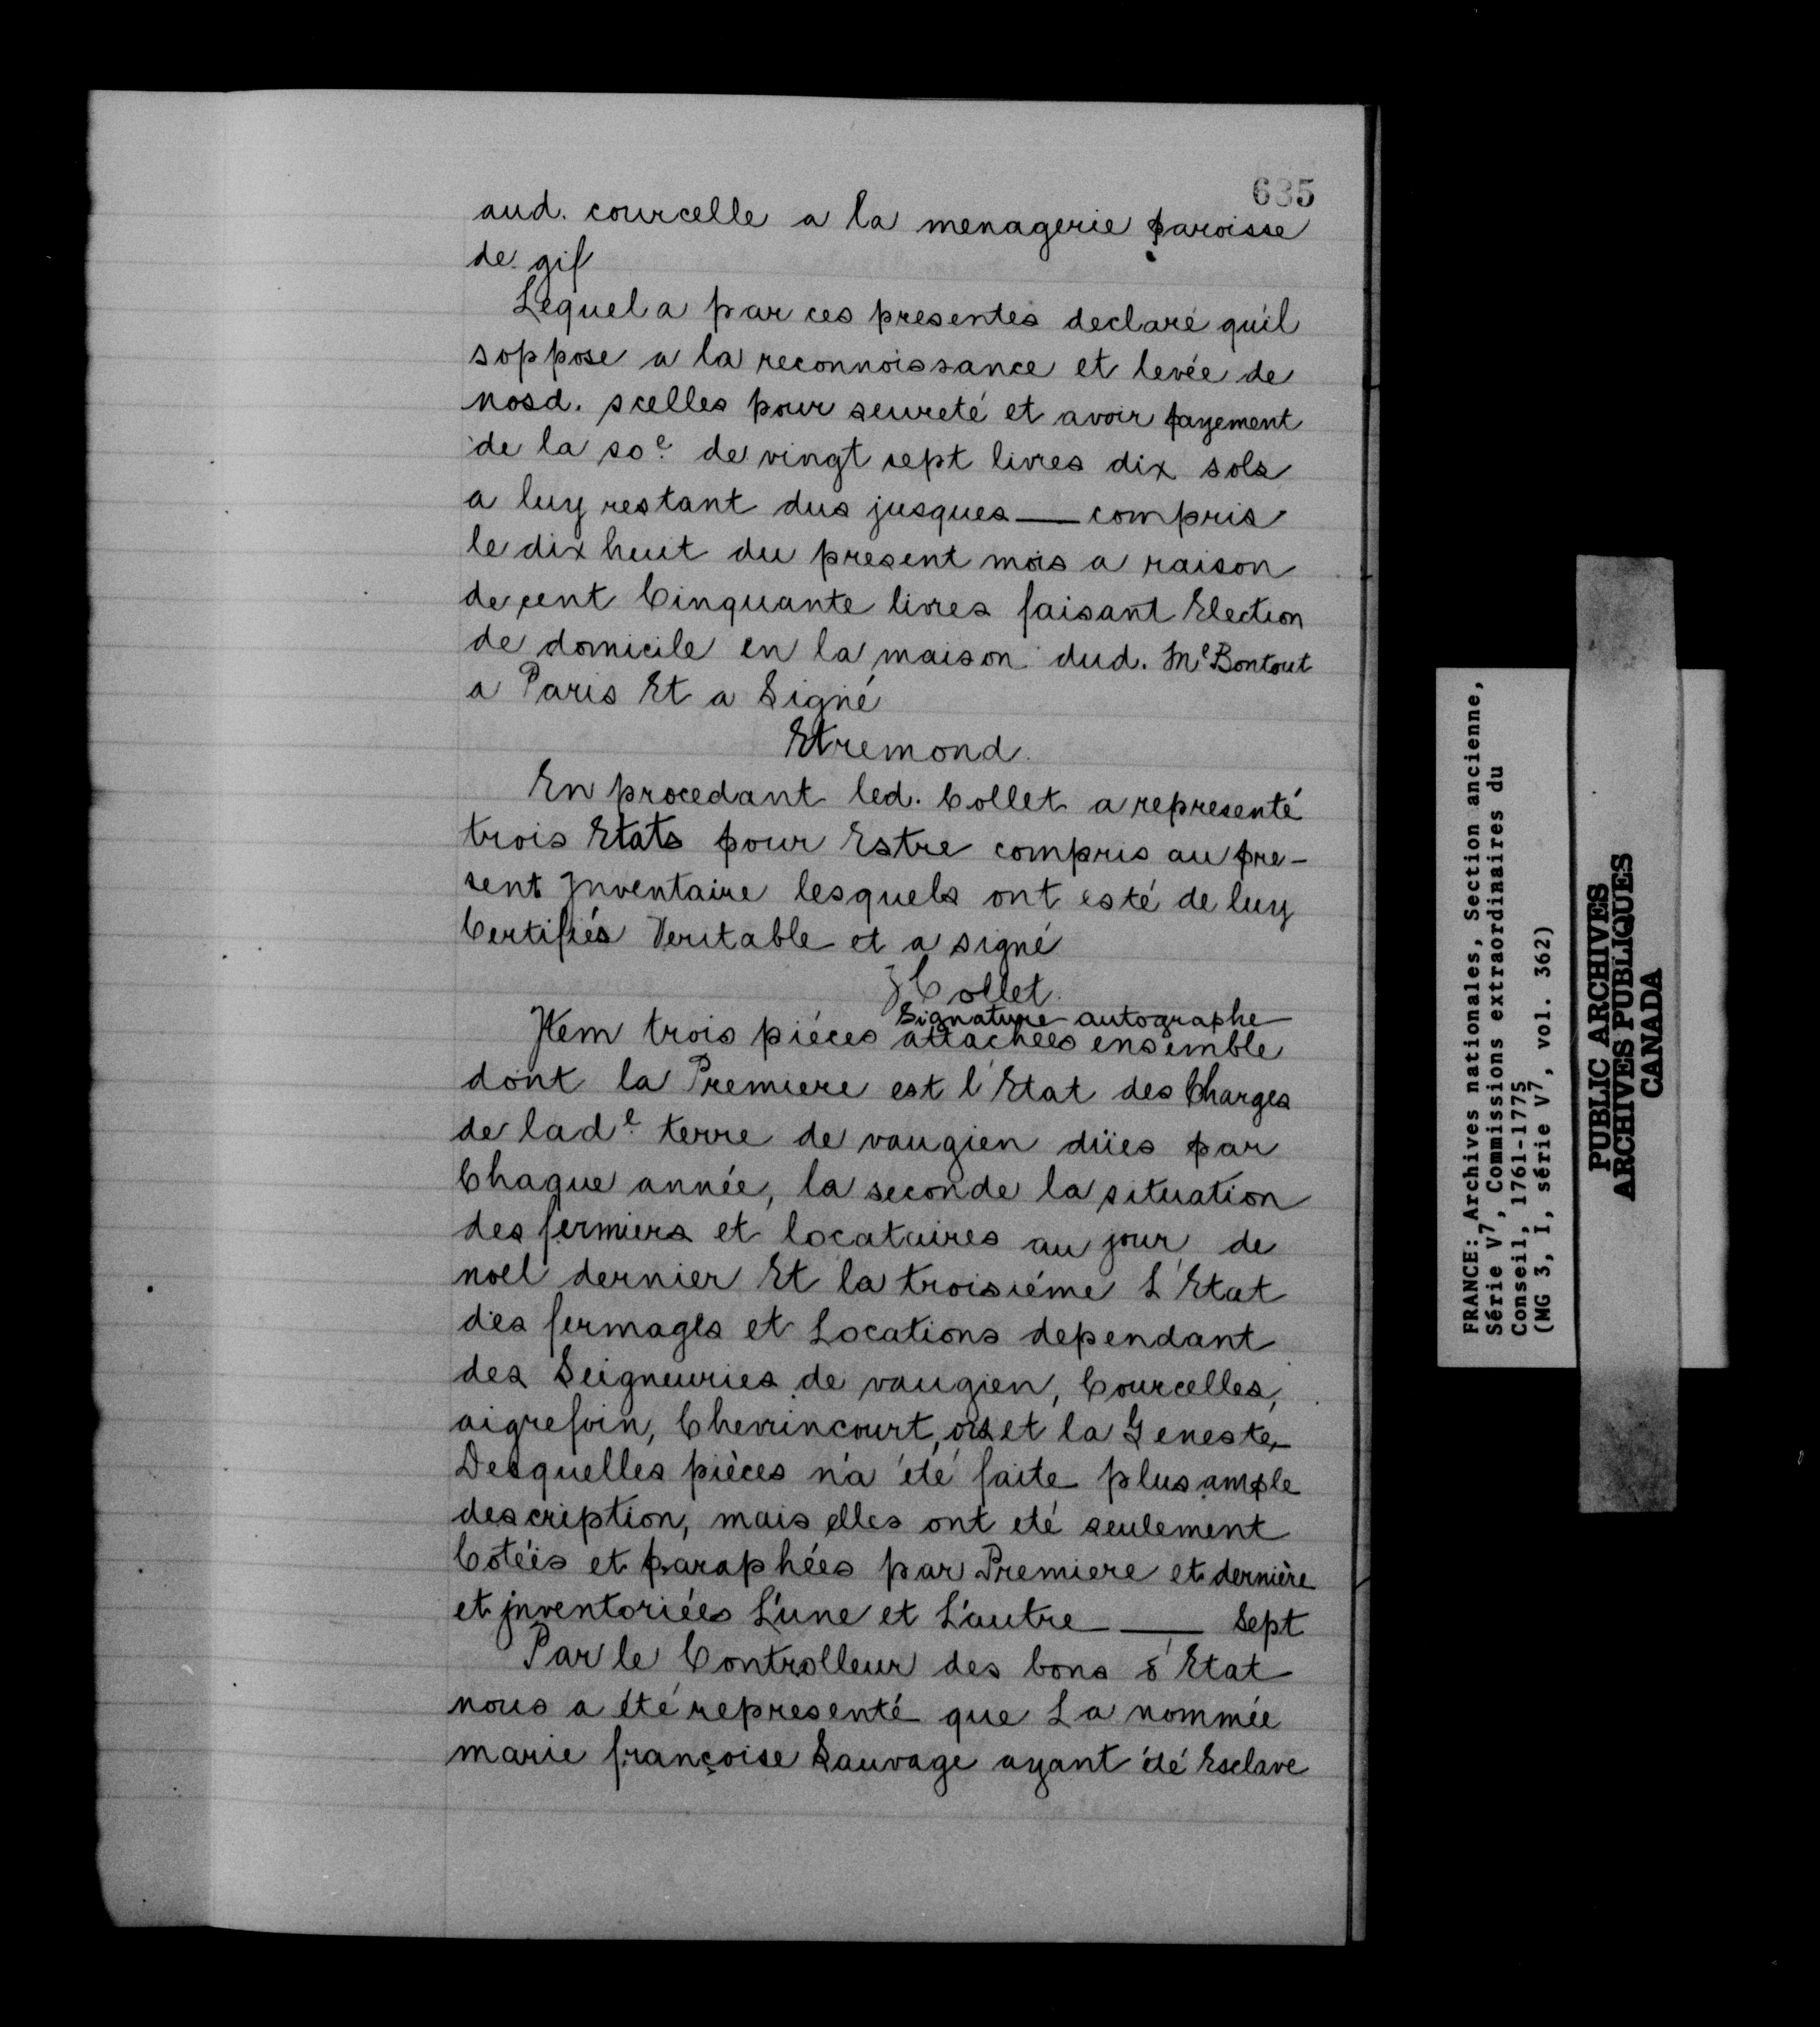 635
aud. courcelle a la menagerie paroisse
de gif
Lequel a par ces presentes declaré qu'il
soppose a la reconnoissance et levée de
nosd. scelles pour seureté et avoir payement
de la soe. de vingt sept livres dix sols
a luy restant dus jusques — compris
le dix huit du present mois a raison
de cent Cinquante livres faisant Election
de domicile en la maison dud. Me Bontout
a Paris Et a Signé
Etremond.
En procedant led. Collet a representé
trois Etats pour Estre compris au pre-
sent Inventaire lesquels ont esté de luy
Certifiés Veritable et a signé
Collet.
Signature autographe
Item trois piéces attachées ensemble
dont la Premiere est l'Etat des Charges
de lade. terre de vaugien düies par
Chaque année, la seconde la situation
des fermiers et locataires au jour de
noel dernier Et la troisiéme L'Etat
des fermages et Locations dependant
des Seigneuries de vaugien, Courcelles,
aigrefoin, Chevrincourt, ors et la Geneste,
Desquelles pièces n'a été faite plus ample
description, mais elles ont eté seulement
Cotéés et paraphées par Premiere et dernière
et jnventoriées L'une et L'autre — Sept
Par le Controlleur des bons d'Etat
nous a été representé que La nommée
marie françoise Sauvage ayant été Esclave
FRANCE: Archives nationales, Section ancienne,
Série V7, Commissions extraordinaires du
Conseil, 1761-1775
(MG 3, I, série V7, vol. 362)
PUBLIC ARCHIVES
ARCHIVES PUBLIQUES
CANADA